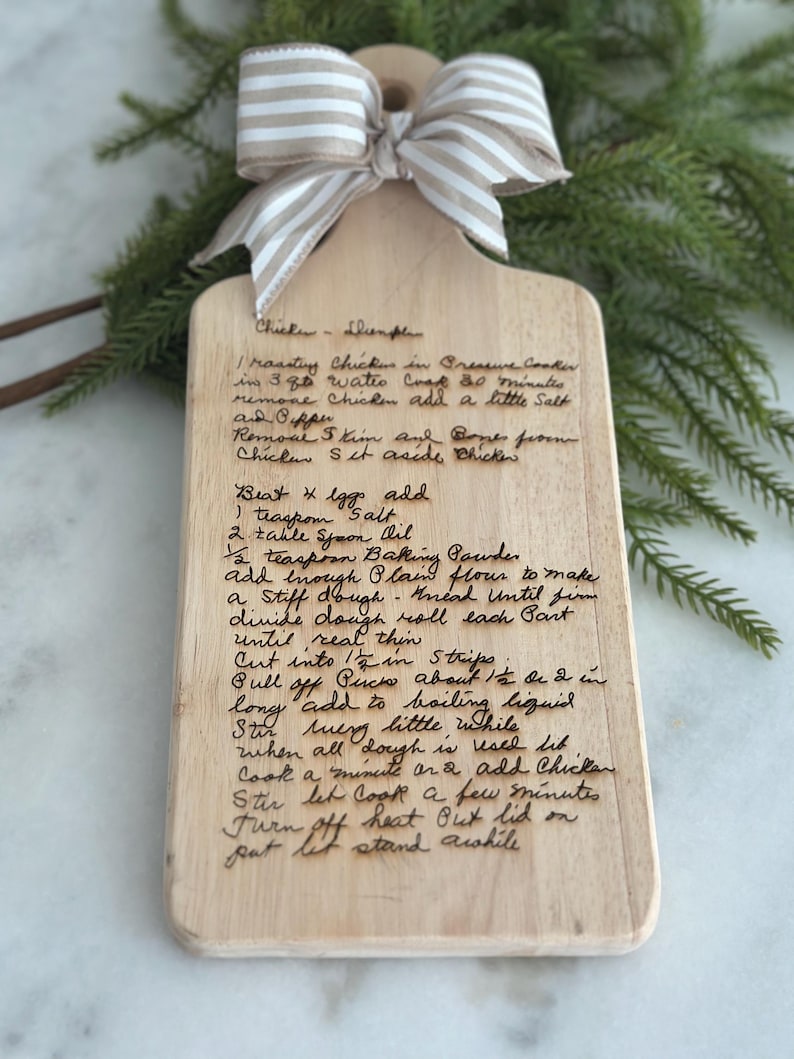 Chicken - Dumplen
1 roasting Chicken in Pressure Cooker
in 3 qts Water Cook 30 minutes
remove Chicken add a little Salt
and Pepper
Remove Skin and Bones from
Chicken Set aside Chicken
Beat 4 eggs add
1 teaspoon Salt
2 table spoon Oil
1/2 teaspoon Baking Powder
add enough Plain flour to make
a Stiff dough - Knead Until firm
divide dough roll each Part
until real thin
Cut into 1 1/2 in Strips.
Pull off Pieces about 1 1/2 or 2 in
long add to boiling liquid
Stir every little while
when all dough is used let
Cook a minute or 2 add Chicken
Stir let Cook a few minutes
Turn off heat Put lid on
put let stand awhile